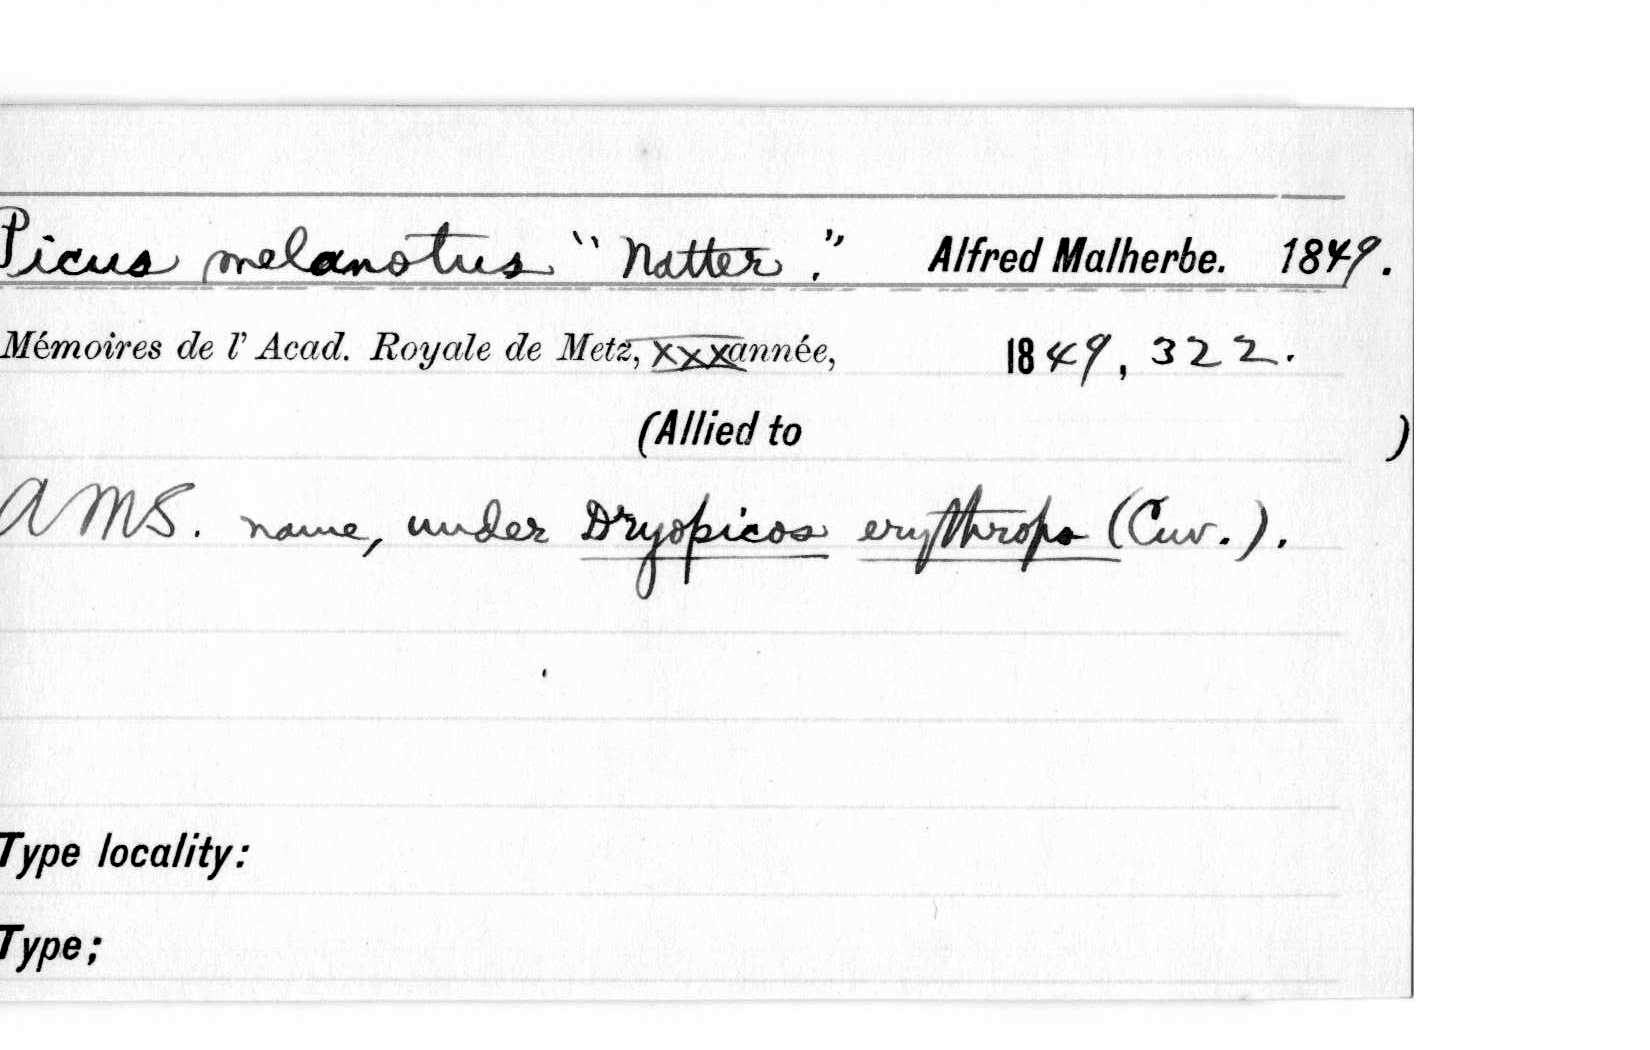 Picus melanotus "Natter." Alfred Malherbe. 1849.
Mémoires de l' Acad. Royale de Metz, XXX année, 1849, 322.
(Allied to )
A MS. name, under Dryopicos erythrops (Cuv.).
Type locality:
Type;